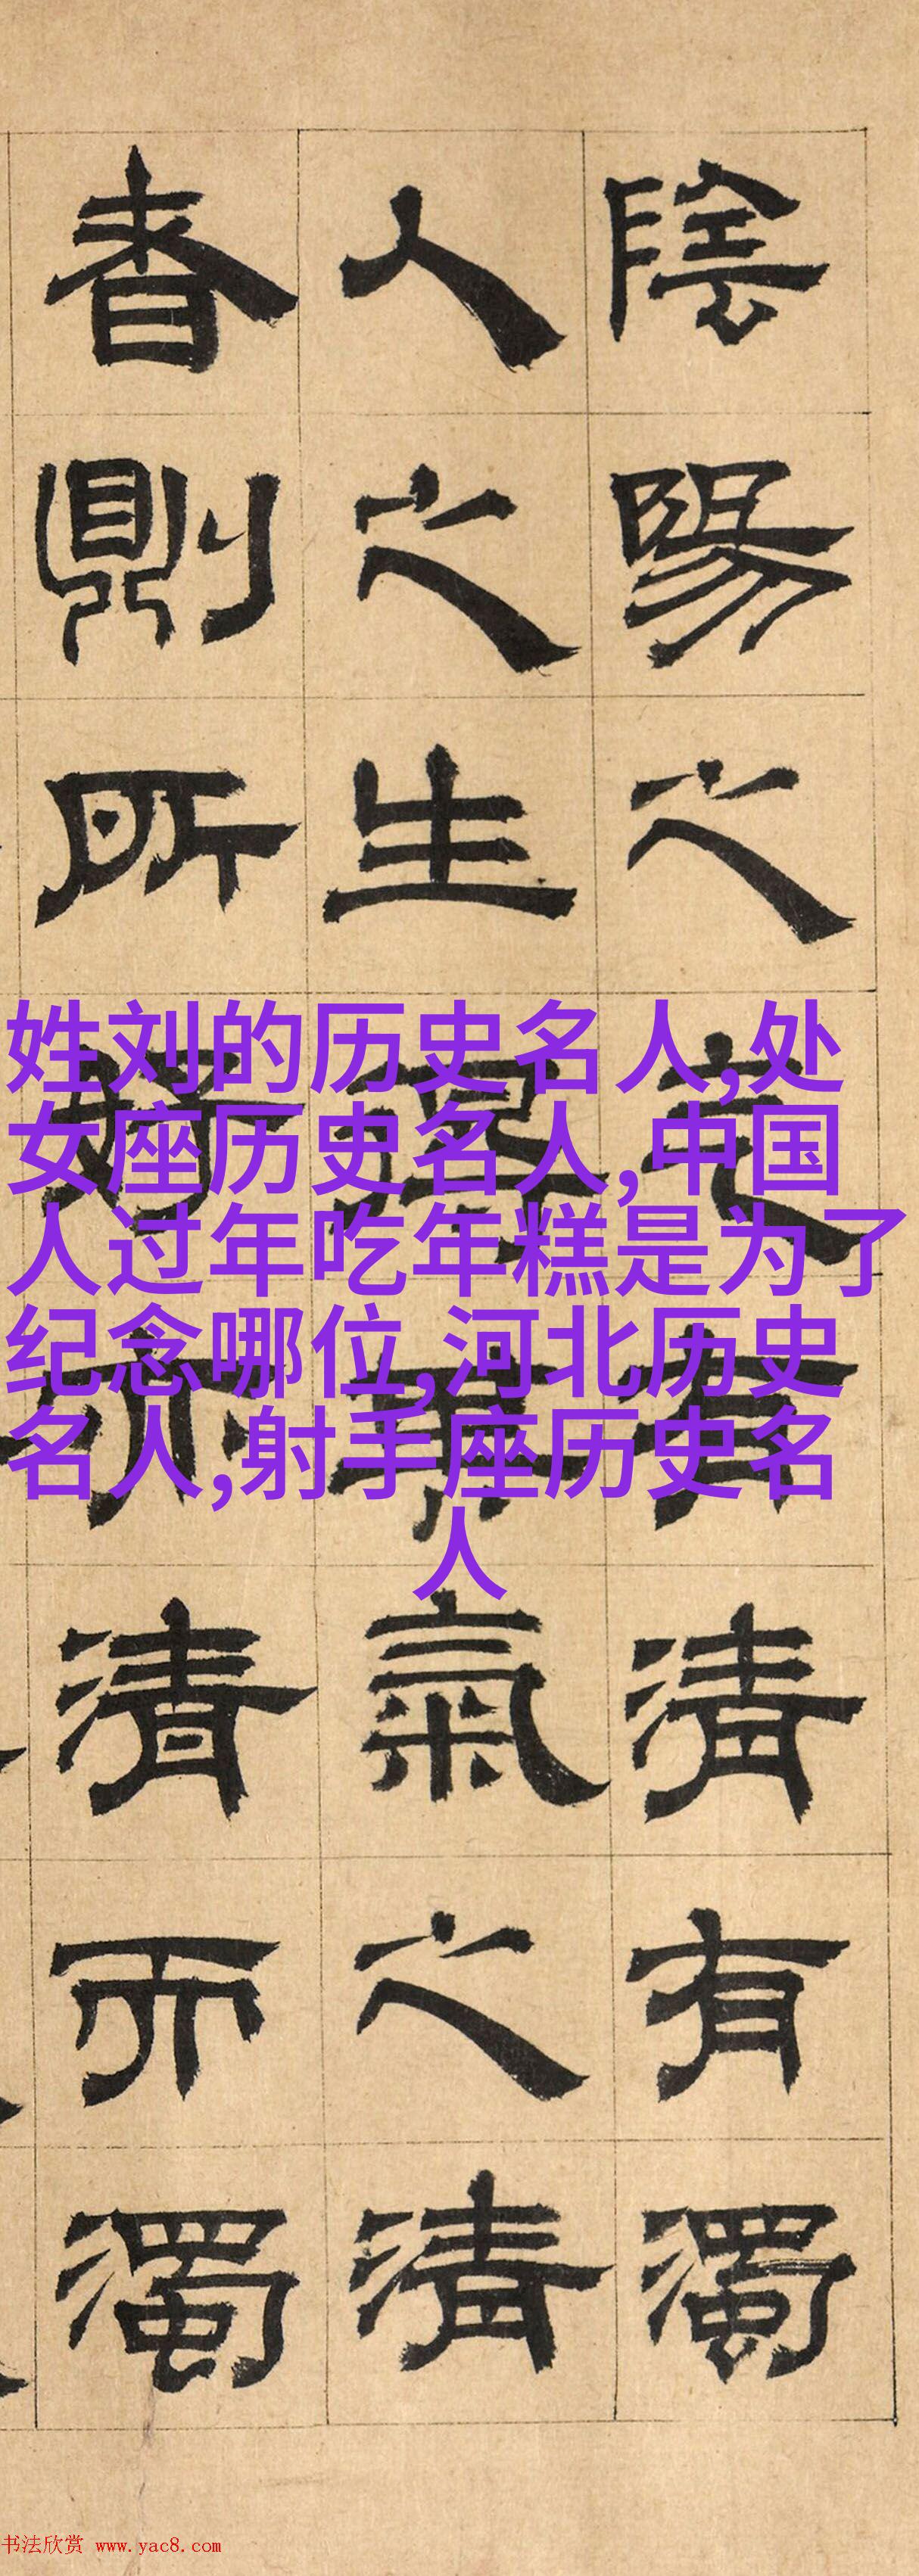 陰陽之有清有濁
人之生氣之清
者則所亦清而濁
姓刘的历史名人,处
女座历史名人,中国
人过年吃年糕是为了
纪念哪位,河北历史
名人,射手座历史名
人
书法欣赏 www.yac8.com